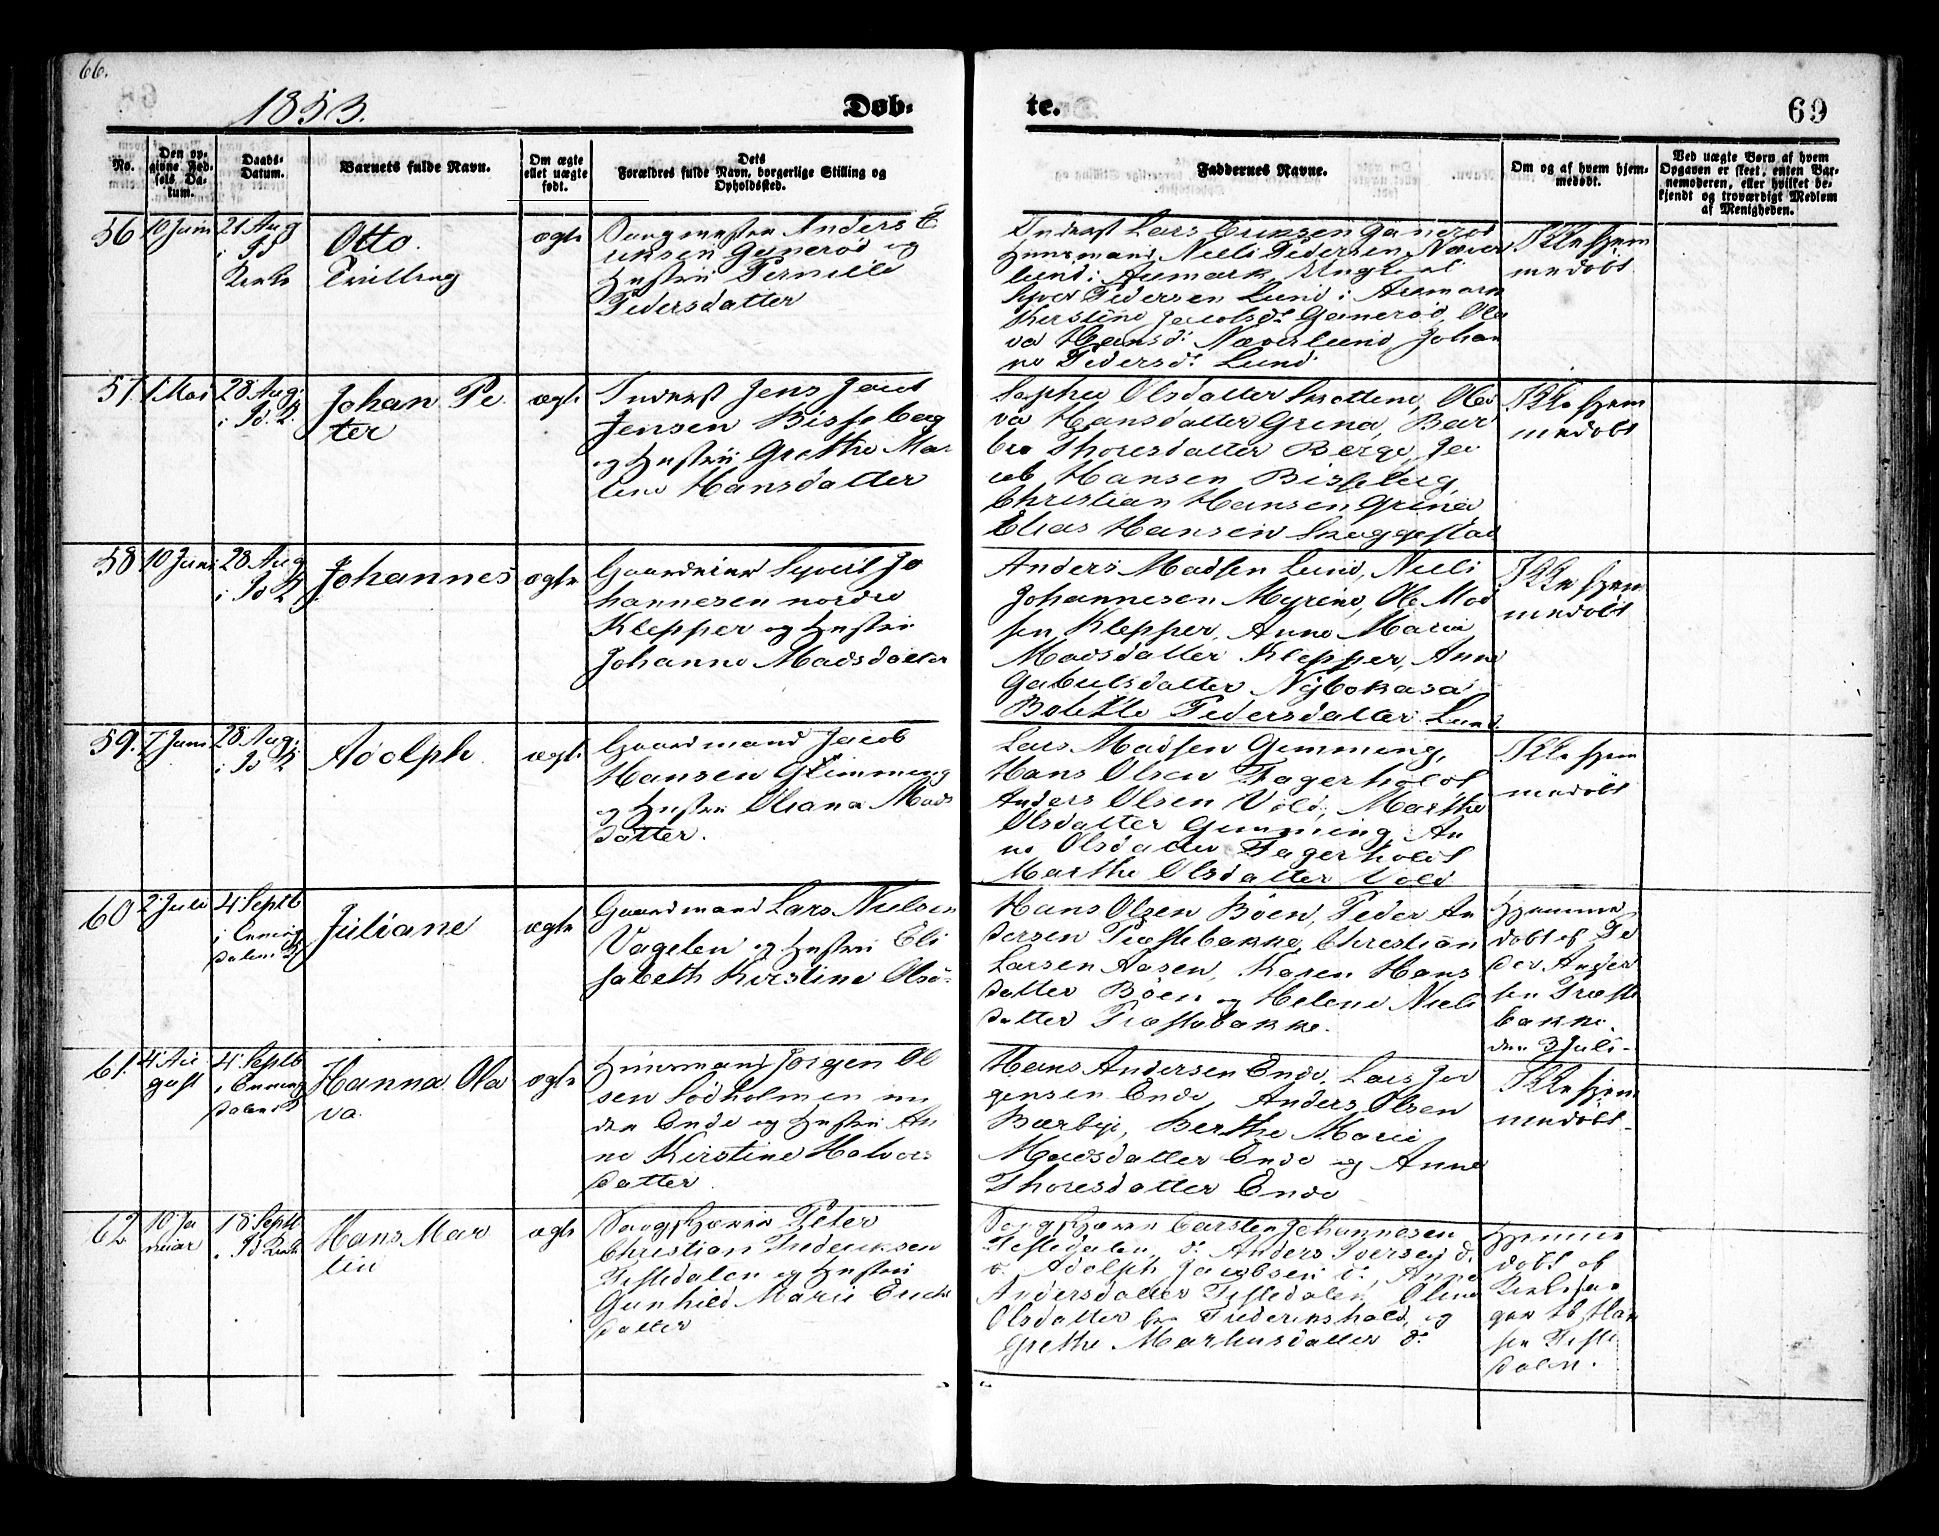 66.
1853.
Døb-
te.
69
No.
Den op-
givne Fød-
sels Da-
tum.
Daabs-
Datum.
Barnets fulde Navn.
Om ægte
ellet uægte
født.
Dets
Forældres fulde Navn, borgerlige Stilling og
Opholdssted.
Faddernes Navne.
Om og af hvem hjem-
medøbt.
Ved uægte Børn af hvem
Opgaven er skeet, enten Bar-
nemoderen, eller hvilket be-
kjendt og troværdigt Medlem
af Menigheden.
56
10 Juni
21 Aug
i Id
Kirke
Otto.
Tvilling
ægte
Anders E
riksen Gjenerød og
Hustrii Pernille
Pedersdatter
Inderst Lars Eriksen
Huusmand Niels Pedersen Næver
lund i Aremark
Pedersen Lund i Aremark
Kerstine Jacobsd. Ole
va Hansd. Næverlund Johan
ne Pedersd. Lund
Ikke hjem
medøbt
57
1 Mai
28 Aug.
i Id. K.
Johan Pe
ter
ægte
Inderst Jens Jacob
Jensen Bisseberg
og Hustrii Grethe Ma-
lene Hansdatter
Sophie Olsdatter Olea
va Hansdatter Grena, Bar
bra Thoresdatter Berge, Ja
cob Hansen Bisseberg,
Christian Hansen Grena
Elias Hansen Skaggestad
Ikke hjem
medøbt
58
10 Juni
28 Aug
i Id K
Johannes
ægte
Gaardeier Syvert Jo
hannesen nordre
Klepper og Hustrii
Johanne Madsdatter
Anders Madsen Lund, Niels
Johannesen Myrene, Ole Mad
sen Klepper, Anne Marie
Madsdatter Klepper, Anne
Gabrielsdatter
Bolette Pedersdatter Lund
Ikke hjem
medøbt
59.
7 Juni
28 Aug.
i Id K
Adolph
ægte
Gaardmand Jacob
Hansen Glimming
og Hustrii Oliana Mads
datter.
Lars Madsen Gimming,
Hans Olsen Fagerholdt
Anders Olsen Vold, Marthe
Olsdatter Gimming An
ne Olsdatter Fagerholdt
Marthe Olsdatter Vold
Ikke hjem
medøbt
60
2 Juli
4 Septb
i Enning
dalens K
Juliane
ægte
Gaardmand Lars Nielsen
Vagelen og Hustrii Eli
sabeth Kirstine Olsd.
Hans Olsen Böen, Peder An
dersen Præstebakke, Christian
Larsen Aasen, Karen Hans
datter Böen og Helene Niels
datter Præstebakke.
Hjemme
døbt af Pe
der Ander
sen Præste
bakke.
den 3 Juli-
61.
4 Au
gust
4 Septb
i Enning
dalens K
Hanna Ola
va.
ægte
Huusmand Jørgen Ol
sen Södholmen un
der Ende og Hustrii An
ne Kirstine Halvors
datter.
Hans Andersen Ende, Lars Jør
gensen Ende, Anders Olsen
Bærbye, Berthe Marie
Madsdatter Ende og Anne
Thoresdatter Ende
Ikke hjem
medøbt.
62
10 Ja
nuar
18 Septb
i Id Kirke
Hans Mar
tin
ægte
Peter
Christian Frederiksen
Tistedalen og Hustrii
Gunhild Marie Erichs
datter
Carsten Johannesen
Tistedalen, do Anders Iversen do.
do. Adolph Jacobsen do, Anne
Andersdatter Tistedalen, Oline
Olsdatter fra Frederikshald, og
Grethe Markusdatter do
Hjemme
døbt af
Kirkesan
ger Han
sen Tiste
dalen.